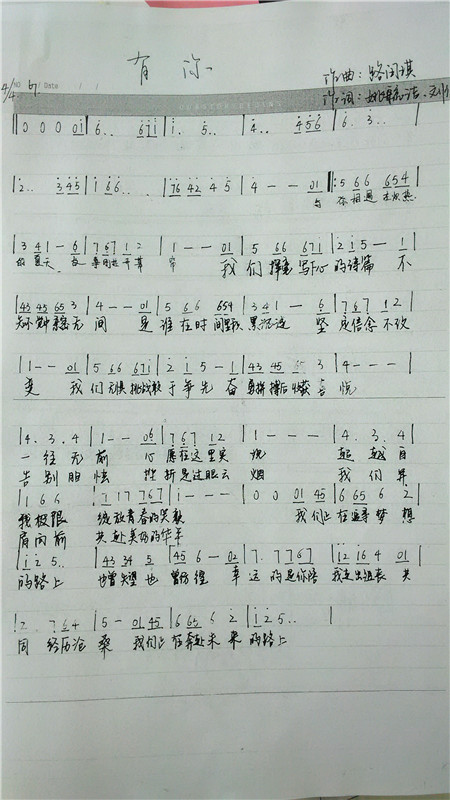 有你
作曲：路闰祺
4/4 NO. 67. / Date / /
作词：
‖ 0 0 0 01 | 6.. 671 | 1. 5.. | 4.. 456 | 6. 3.. |
| 2.. 345 | 1 66.. | 76 42 4 5 | 4 - - 01 ‖: 5 66 654 |
与 你相遇在炎热
| 3 41 - 6 | 767 12 | 1 - - 01 | 5 66 671 | 215 - 1 |
的夏天 我们挥毫写下心的诗篇 不
43 45 65 3 | 4 - - 01 | 5 66 654 | 3 41 - 6 | 767 12 |
无间 是谁在时间里 坚 定信念不改
1 - - 01 | 5 66 671 | 215 - 1 | 43 45 65 3 | 4 - - - |
变 我们无惧挑战敢于争先 奋 勇拼搏后收获喜悦
| 4. 3. 4 | 1 - - 06 | 767 12 | 1 - - - | 4. 3. 4 |
一往无前 心愿在这里实现 超越自
告别胆怯 挫折是过眼云烟 我们并
| 1 66 | 717 767 | 1 - - - | 0 0 01 45 | 6 65 6 2 |
我极限 绽放青春的笑颜 我们正在追寻梦想
肩向前 共赴美好的华年
| 1 2 5.. | 43 34 5 | 45 6 - 02 | 7. 7767 | 12 16 4 01 |
的路上 也曾失望也曾彷徨 幸运的是你陪我走出沮丧 共
| 2. 764 | 5 - 01 45 | 6 65 6 2 | 1 2 5.. |
同经历沧桑 我们正在奔赴未来的路上